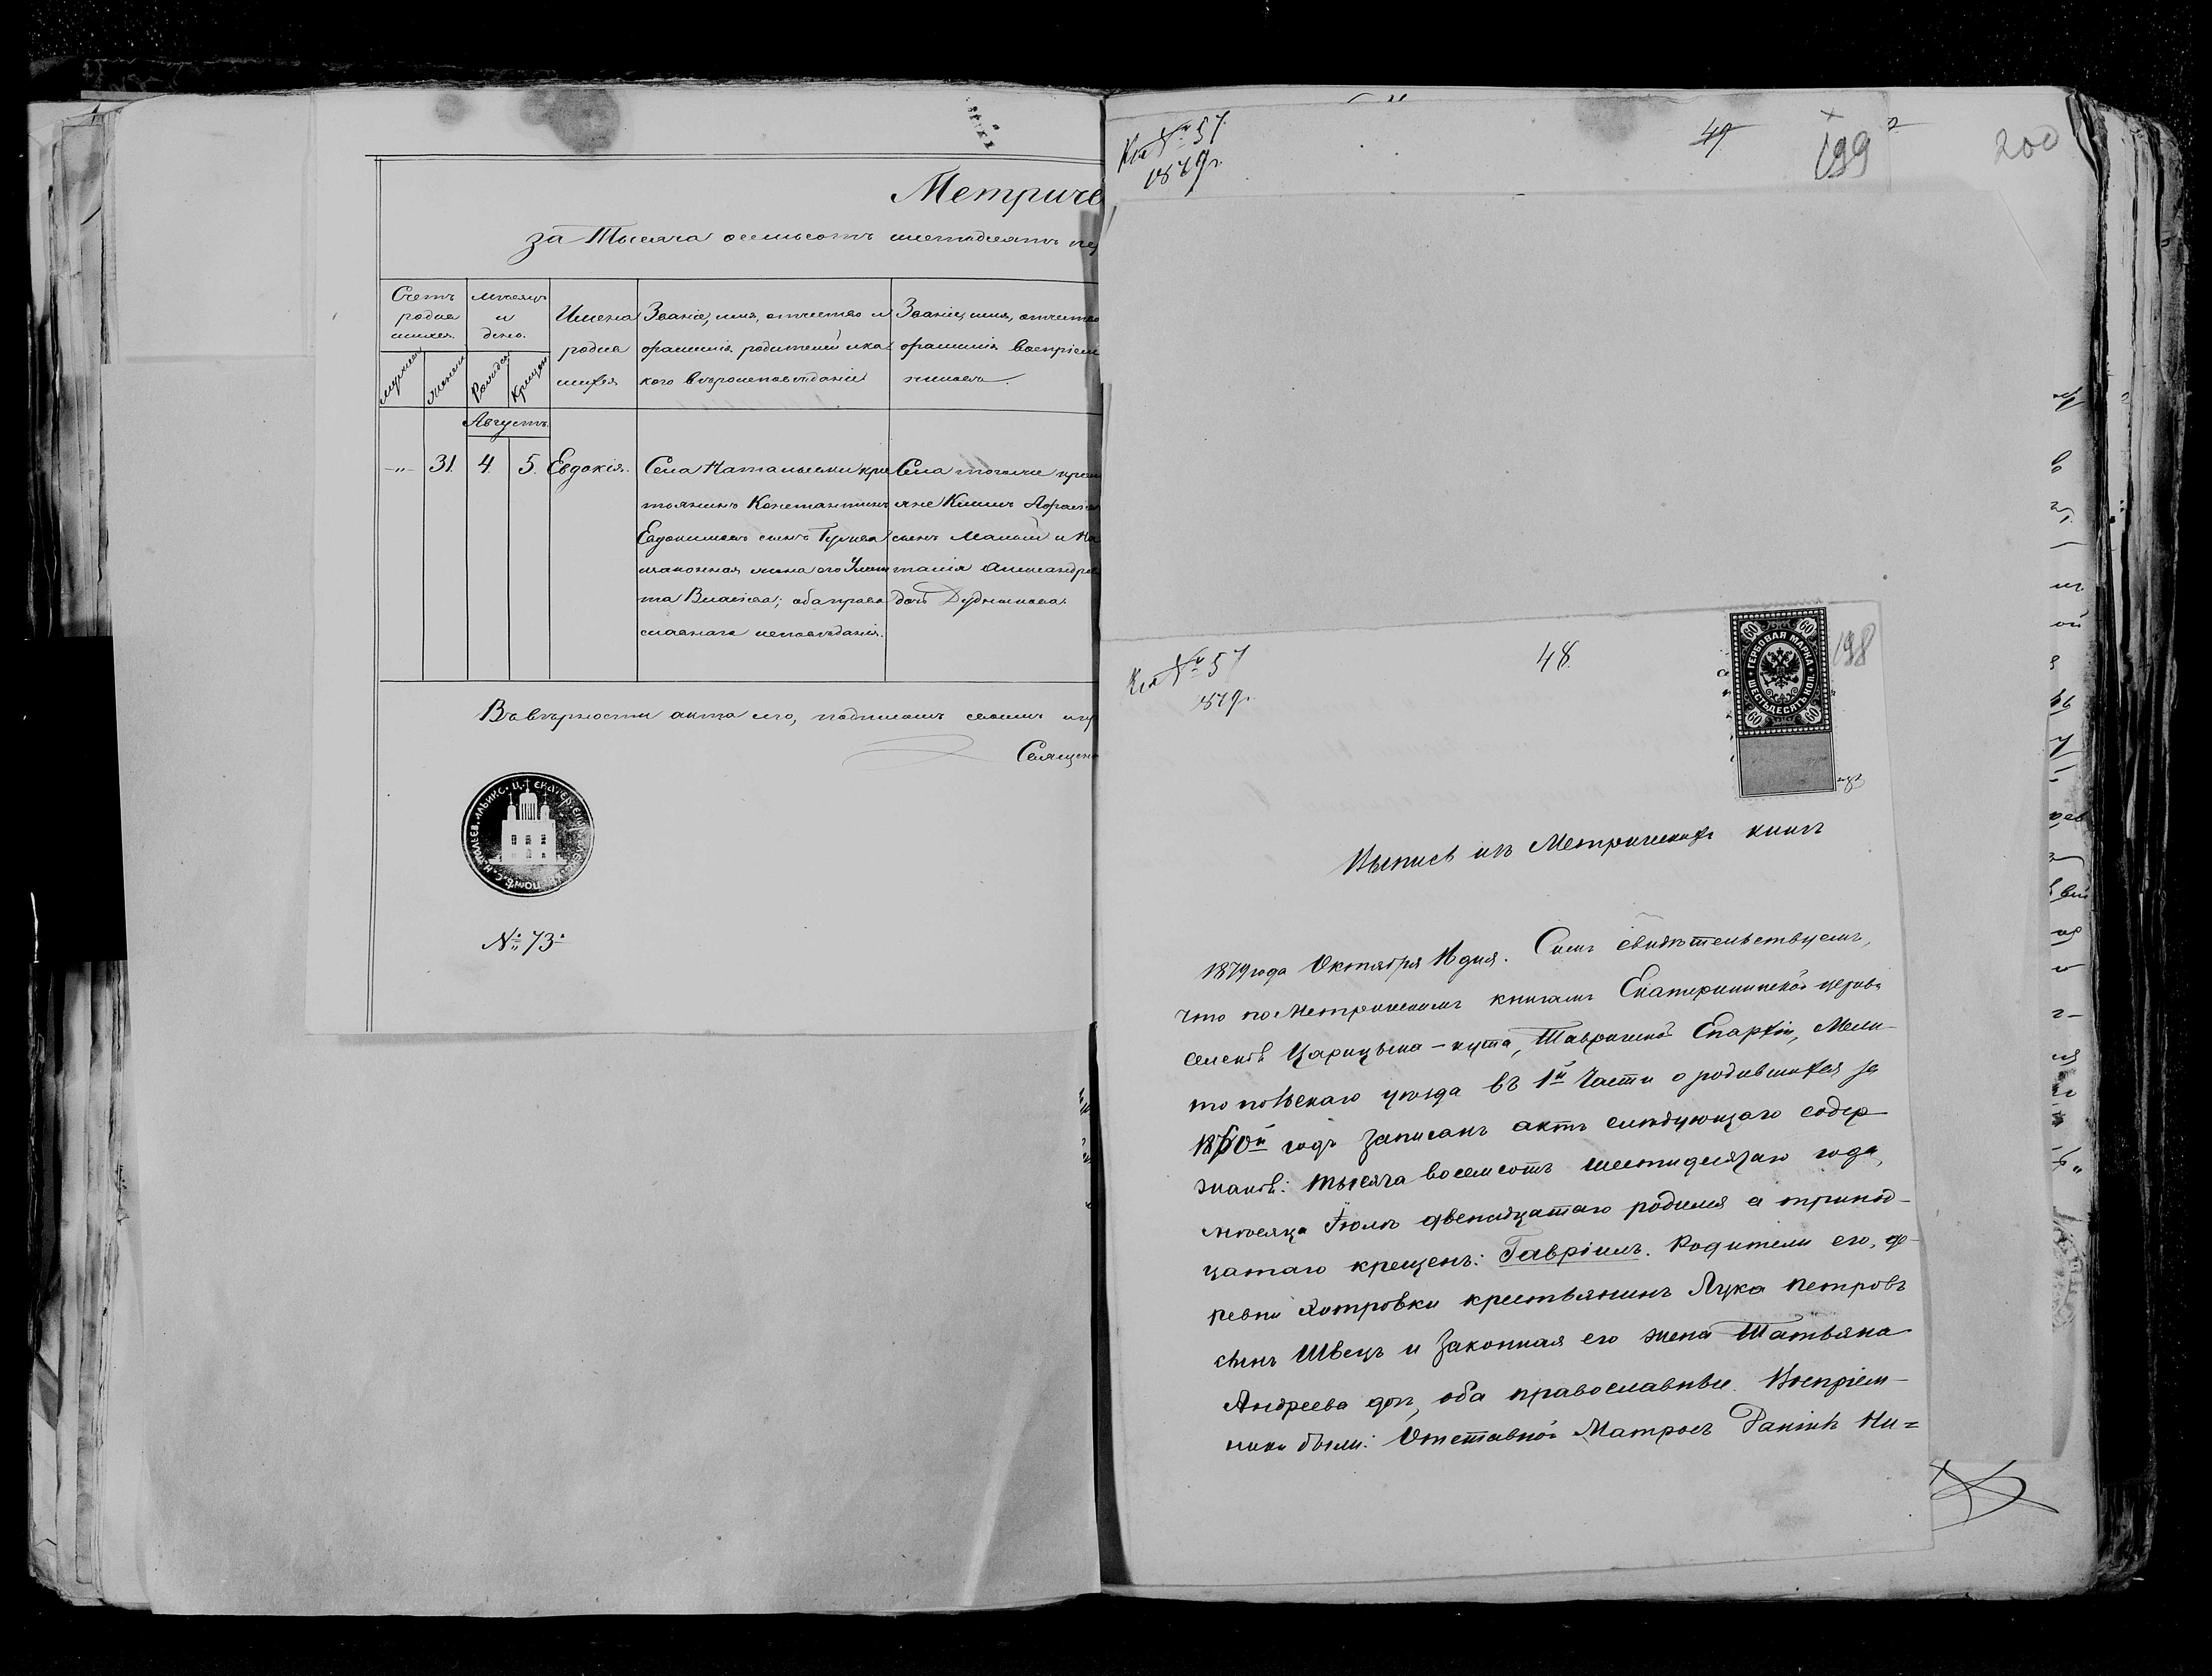 Метриче
за Тысяча осемьсотъ шестьдесятъ
Счетъ родив шихся.
Мѣсяцъ и день.
Имена родив шихся
Званіе, имя, отчество и фамилія родителей и ка кого вѣроисповѣданія
Званіе, имя, отчество фамилія воспріем никовъ.
мужеск
женск
Рожден
Крещен
Августъ.
-"- 31. 4. 5. Евдокія.
Села Натальевки крес
тьянинъ Константинъ
Евдокимовъ сынъ Гулива
законная жена его Улит
та Власіева; оба право
славнаго исповѣданія.
Села тогоже крест
яне Климъ
сынъ Малый и На
талія Александрова
дочь Дудникова.
Въ вѣрности акта сего, подписомъ своимъ и пр
Священ
№ 73.
Кт № 57.
1879 г.
49
199
200
Кт № 57
1879 г.
48.
198
60 60
ГЕРБОВАЯ МАРКА
ШЕСТЬДЕСЯТЪ КОП.
60 60
Выпись изъ Метрическихъ книгъ
1879 года Октября 11 дня. Симъ свидѣтельствуемъ,
что по Метрическимъ книгамъ Екатерининской церкви
селенія Царицына-кута, Таврической Епархіи, Мели-
топольскаго уѣзда въ 1й части о родившихся за
1860й годъ записанъ актъ слѣдующаго содер-
жанія: тысяча восемсотъ шестидесятаго года,
мѣсяца Іюля двенадцатаго родился а тринад-
цатаго крещенъ: Гавріилъ. Родители его, де-
ревни Янтровки крестьянинъ Лука Петровъ
сынъ Швецъ и законная его жена Татьяна
Андреева дочь, оба православные. Воспріем-
ники были: Отставной Матросъ Даніилъ Ни=